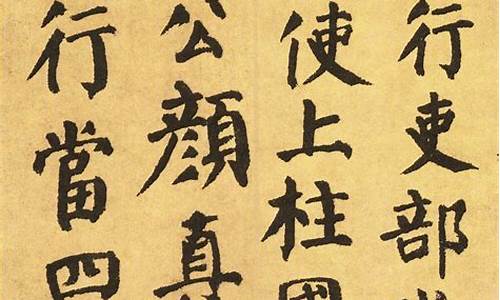 行吏部
使上柱國
公顏真
行當四